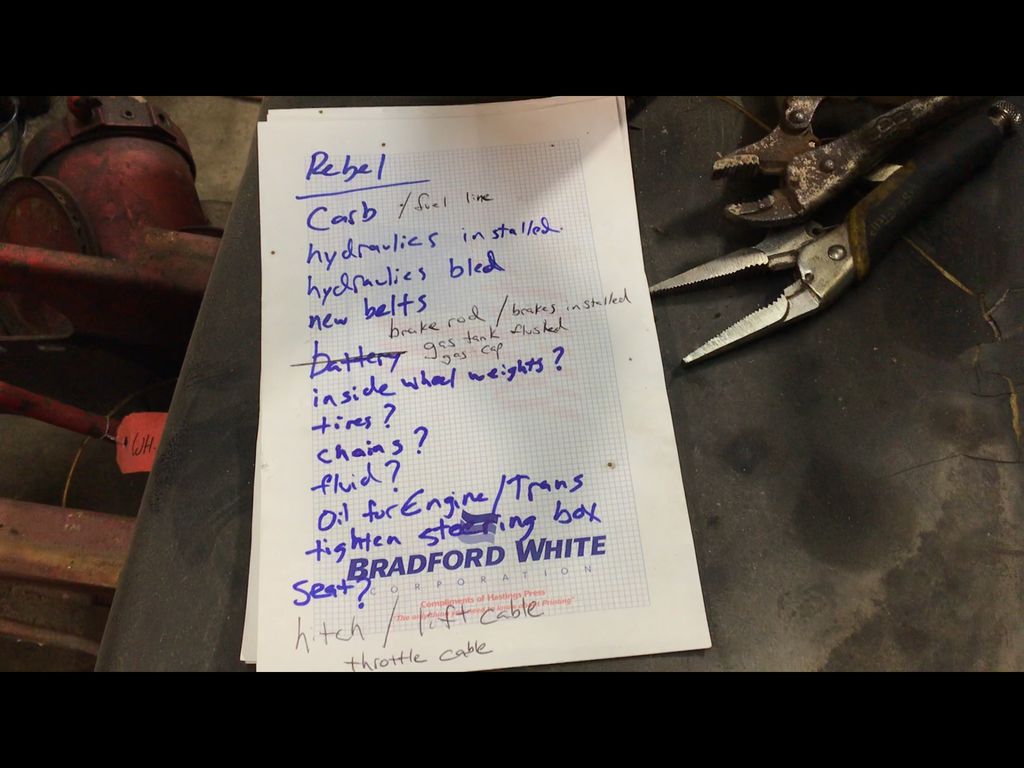 Rebel
Carb / fuel line
hydraulics installed.
hydraulics bled
new belts
brake rod / brakes installed
battery gas tank flushed
gas cap
inside wheel weights?
tires?
chains?
fluid?
Oil for Engine/Trans
tighten steering box
BRADFORD WHITE
CORPORATION
Seat?
Compliments of Hastings Press
hitch / lift cable
throttle cable
WH.